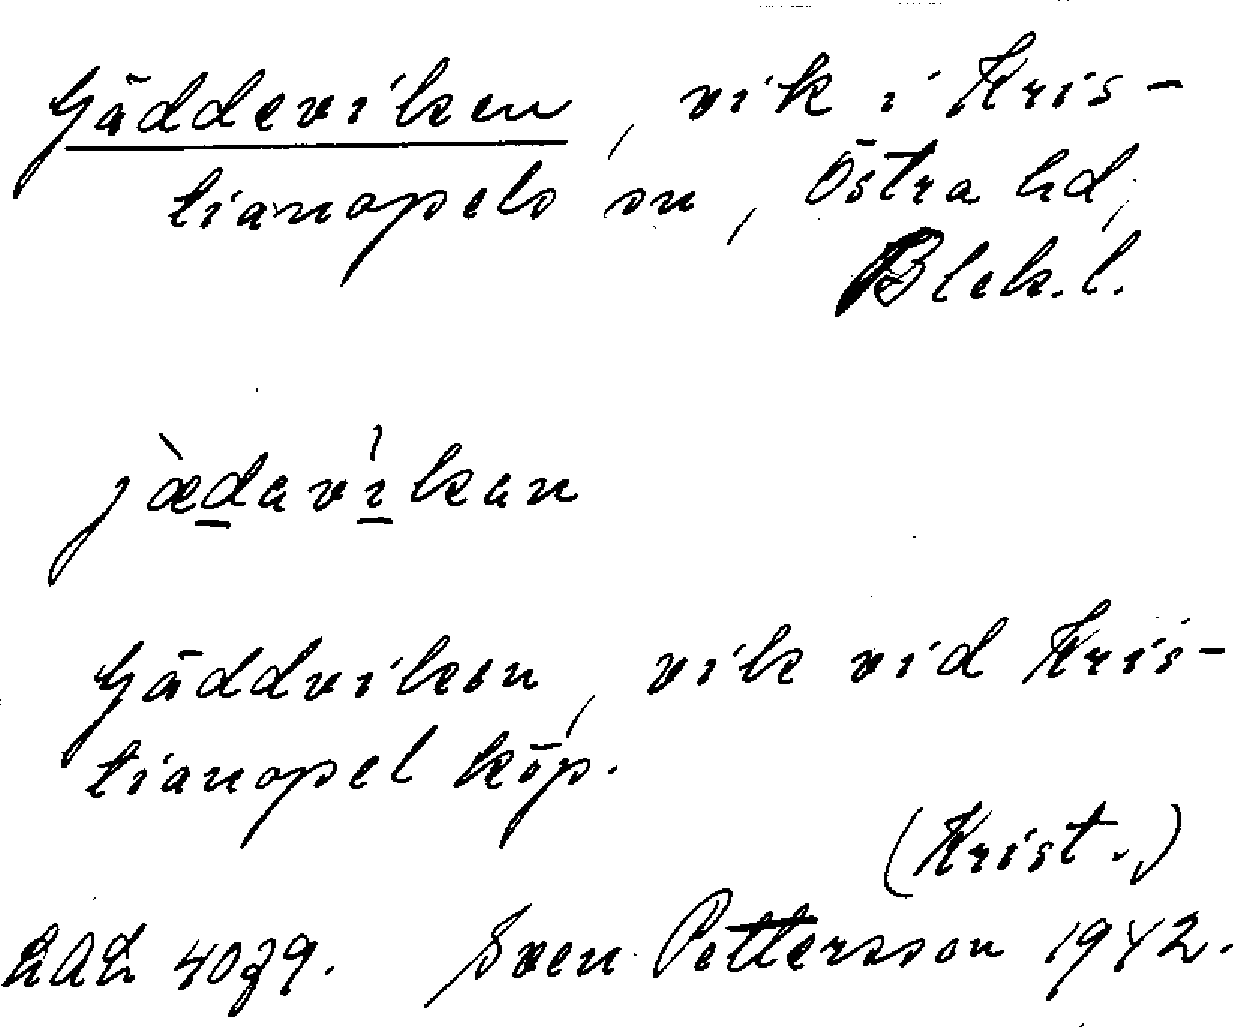 Gäddeviken, vik i Kris-
tianopels sn, Östra hd,
Blek.l.
jæ̀d̲avì̲kan
Gäddviken, vik vid Kris-
tianopel köp.
(Krist.)
LAL 4039. Sven Pettersson 1942.